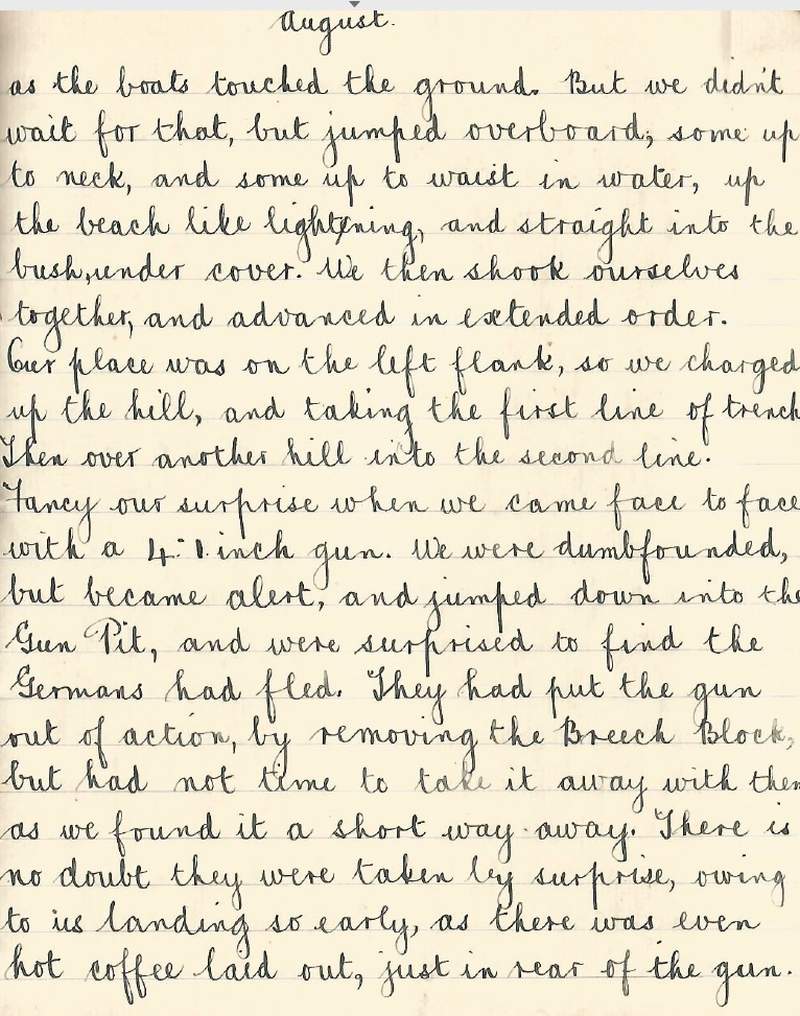 August.
as the boats touched the ground. But we didn't
wait for that, but jumped overboard, some up
to neck, and some up to waist in water, up
the beach like lightening, and straight into the
bush, under cover. We then shook ourselves
together, and advanced in extended order.
Our place was on the left flank, so we charged
up the hill, and taking the first line of trench
Then over another hill into the second line.
Fancy our surprise when we came face to face
with a 4.1 inch gun. We were dumbfounded,
but became alert, and jumped down into the
Gun Pit, and were surprised to find the
Germans had fled. They had put the gun
out of action, by removing the Breech Block,
but had not time to take it away with them
as we found it a short way away. There is
no doubt they were taken by surprise, owing
to us landing so early, as there was even
hot coffee laid out, just in rear of the gun.